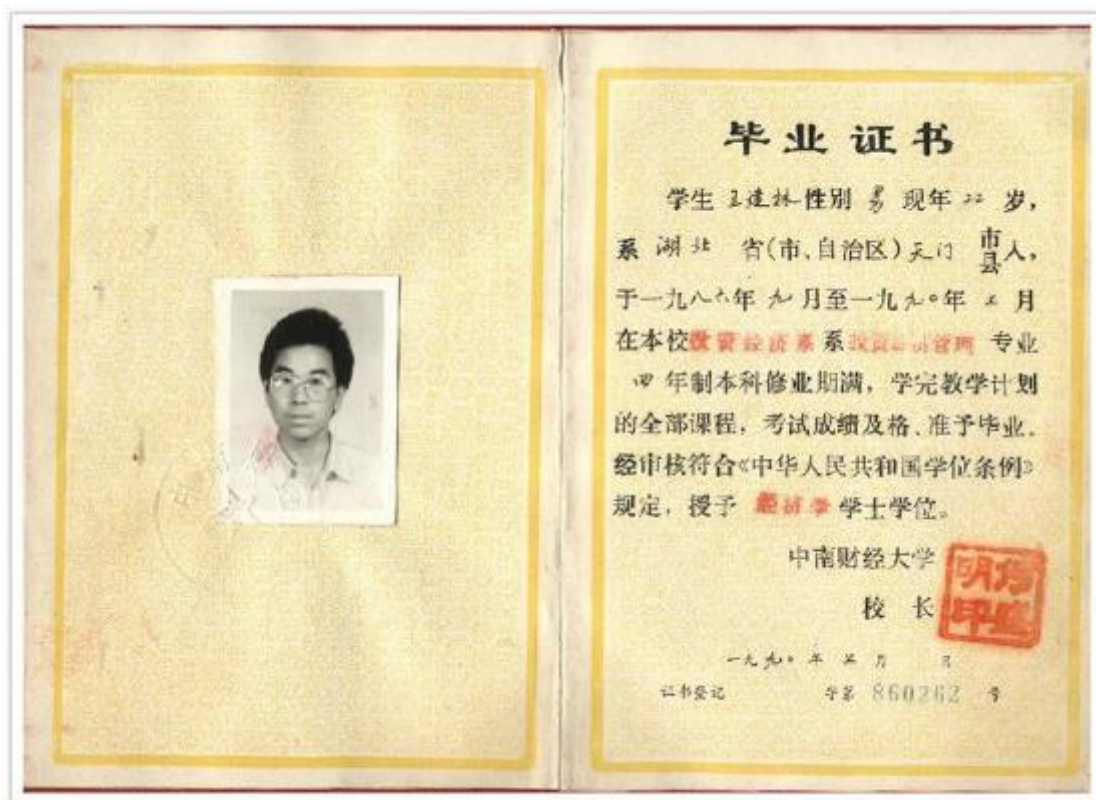 毕业证书
学生 王建林 性别 男 现年 二二 岁,
系 湖北 省(市、自治区) 天门 市县人,
于一九八六年 九 月至一九九〇年 五 月
在本校投资经济系系投资经济管理 专业
四 年制本科修业期满, 学完教学计划
的全部课程, 考试成绩及格、准予毕业。
经审核符合《中华人民共和国学位条例》
规定, 授予 经济学 学士学位。
中南财经大学
校 长
一九九〇 年 五 月 日
证书登记 字第 860262 号